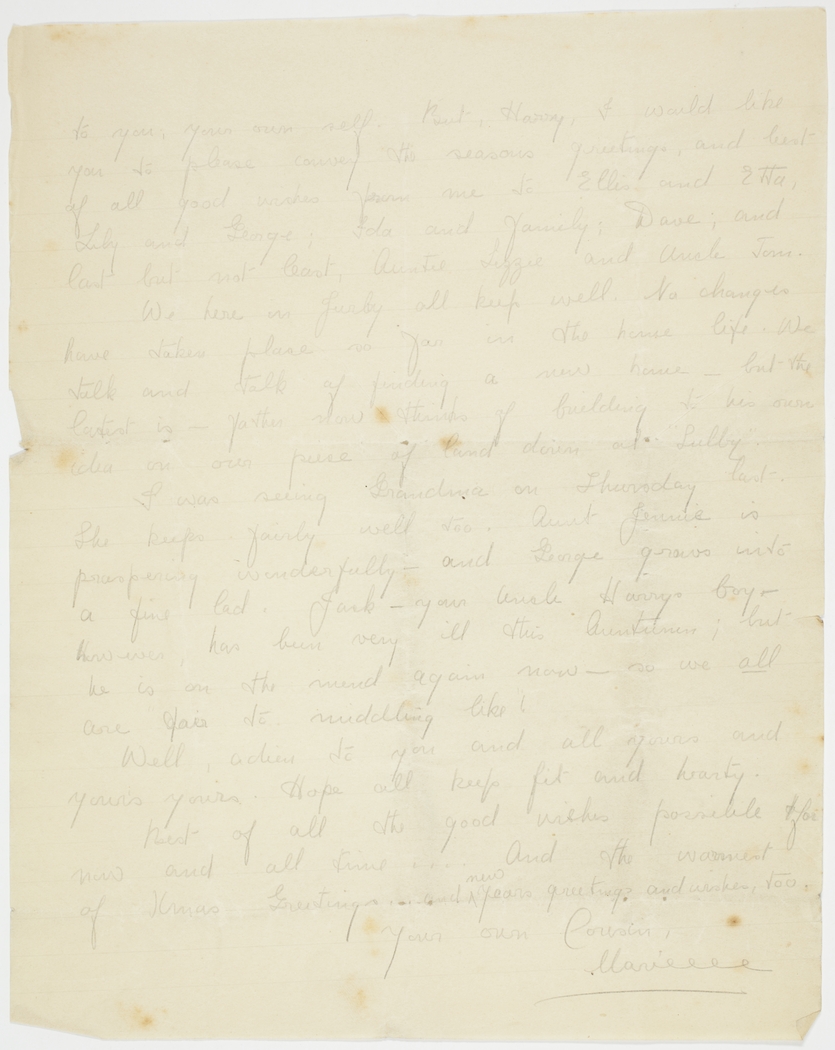 to you, your own self. But, Harry, I would like
you to please convey the seasons greetings, and best
of all good wishes from me to Ellis and Etta,
Lily and George; Ida and family; Dave; and
last but not least, Auntie Lizzie and Uncle Tom.
We here in Jurby all keep well. No changes
have taken place so far in the home life. We
talk and talk of finding a new home – but the
latest is – father now thinks of building to his own
idea on our piece of land down at "Sulby".
I was seeing Grandma on Thursday last.
She keeps fairly well too. Aunt Jennie is
prospering wonderfully – and George grows into
a fine lad. Jack – your Uncle Harrys boy –
however, has been very ill this ; but
he is on the mend again now – so we all
are fair to middling like!
Well, adieu to you and all yours and
yours yours. Hope all keep fit and hearty.
Best of all the good wishes possible for
now and all time .... And the warmest
of Xmas Greetings .... and new years greetings and wishes, too.
Your own Cousin,